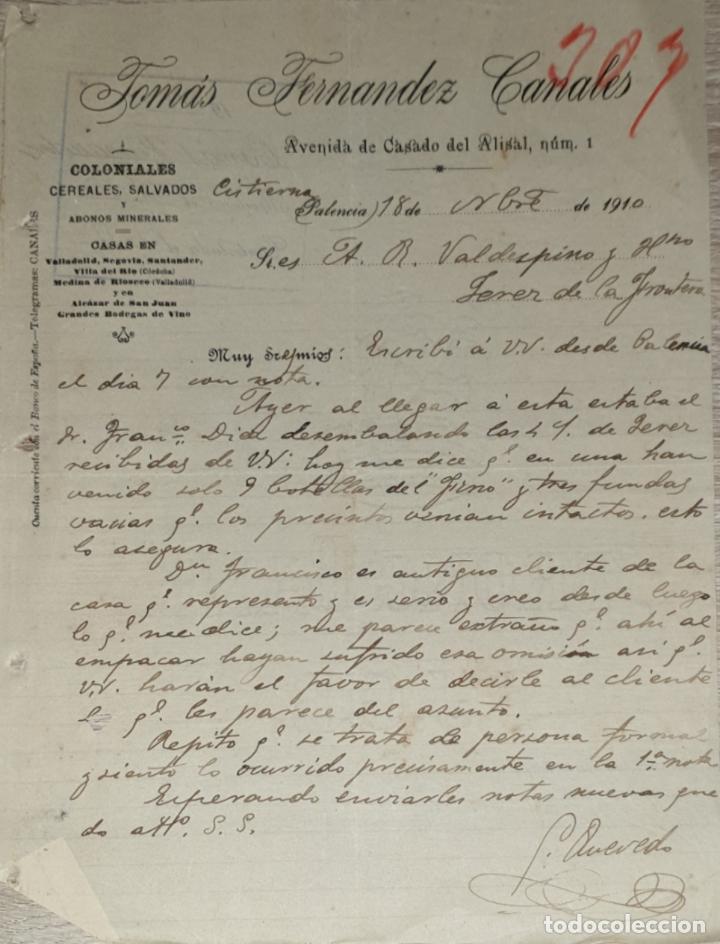 303
Tomás Fernandez Canales
Avenida de Casado del Alisal, núm. 1
COLONIALES
CEREALES, SALVADOS
Y
ABONOS MINERALES
CASAS EN
Valladolid, Segovia, Santander,
Villa del Rio (Córdoba)
Medina de Rioseco (Valladolid)
y en
Alcázar de San Juan
Grandes Bodegas de Vino
Cuenta corriente con el Banco de España.—Telegramas: CANALES
Cistierna
(Palencia) 18 de Nbre de 1910
Sres A. R. Valdespino y Hno
Jerez de la Frontera
Muy Sres mios: Escribí á V.V. desde Palencia
el dia 7 con nota.
Ayer al llegar á esta estaba el
Sr. Franco. Diez desembalando las 4 c/. de Jerez
recibidas de V.V; hoy me dice q.e en una han
venido solo 9 botellas del "Fino" y tres fundas
vacias q.e los precintos venian intactos. esto
lo asegura.
Dn Francisco es antiguo cliente de la
casa q.e represento y es serio y creo desde luego
lo q.e me dice; me parece extraño q.e ahí al
empacar hayan sufrido esa omisión asi q.e
V.V. harán el favor de decirle al cliente
q.e les parece del asunto.
Repito q.e se trata de persona formal
y siento lo ocurrido precisamente en la 1a nota
Esperando enviarles notas nuevas que
do atto. S. S.
Quevedo
todocoleccion